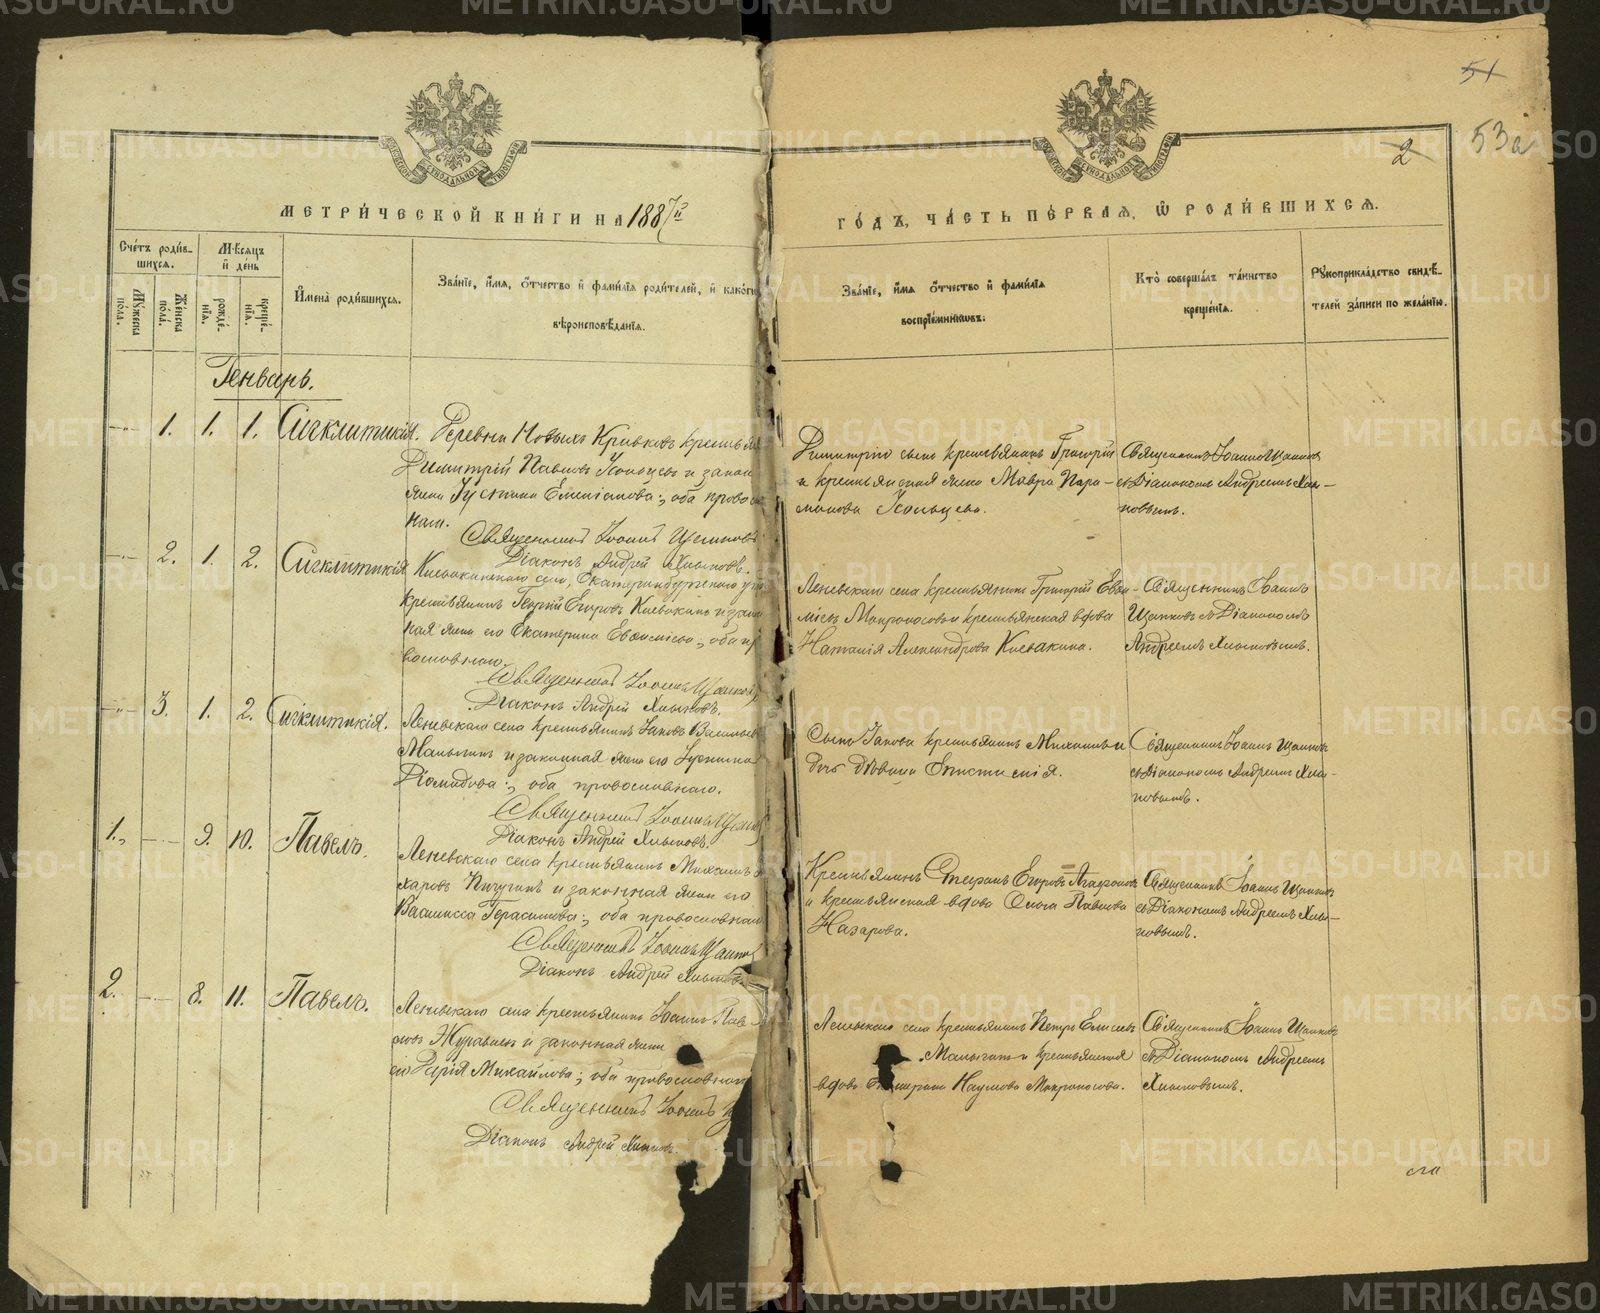 51
53а
2
МЕТРИ́ЧЕСКОЙ КНИ́ГИ НА 1887й
ГО́ДЪ, ЧА́СТЬ ПЕ́РВАЯ, Ѡ РОДИ́ВШИХСЯ.
Сче́тъ роди́в-
шихся.
Му́жеска по́ла.
Же́нска по́ла.
Мѣ́сяцъ и день
рожде́нїя.
креще́нїя.
И҆мена̀ роди́вшихся.
Зва́нїе, и҆́мя, ѻ҆́тчество и҆ фами́лїя роди́телей, и҆ како́гѡ
вѣроисповѣ́данїя.
Зва́нїе, и҆́мя ѻ҆́тчество и҆ фами́лїя
воспрїе́мникѡвъ.
Кто̀ соверша́лъ та́инство
креще́нїя.
Рꙋкоприкла́дство свидѣ́-
телей за́писи по жела́нїю.
Генварь.
1. 1. 1. Сигклитикія.
Деревни Новыхъ Кривковъ крестьян
Димитрій Павловъ Кольцовъ и закон
жена Іустина ; оба православ
наго.
Священникъ Іоаннъ Цапковъ
Діаконъ Андрей Хлыновъ.
Димитрію сынъ крестьянинъ Григорій
и крестьянская жена Мавра Пара-
монова Кольцова.
Священникъ Іоаннъ Цапковъ
съ Діакономъ Андреемъ Хлы-
новымъ.
2. 1. 2. Сигклитикія
Клевакинскаго села, Екатеринбургскаго у
крестьянинъ Георгій Егоровъ Клевакинъ и закон
ная жена его Екатерина ; оба пр
вославнаго.
Священникъ Іоаннъ Цапков
Діаконъ Андрей Хлыновъ.
Леневскаго села крестьянинъ Григорій
Мокроносовъ и крестьянская вдова
Наталія Александрова Клевакина.
Священникъ Іоаннъ
Цапковъ съ Діакономъ
Андреемъ Хлыновымъ.
3. 1. 2. Сигклитикія.
Леневскаго села крестьянинъ Іаковъ Васильев
Малыгинъ и законная жена его Іустина
Діомидова; оба православнаго.
Священникъ Іоаннъ Цапков
Діаконъ Андрей Хлыновъ.
Сынъ Іакова крестьянинъ Михаилъ и
дочь дѣвица Епистимія.
Священникъ Іоаннъ Цапковъ
съ Діакономъ Андреемъ Хлы-
новымъ.
1. 9. 10. Павелъ.
Леневскаго села крестьянинъ Михаилъ
харовъ Пичугинъ и законная жена его
Василисса Герасимова; оба православнаго
Священникъ Іоаннъ Цапков
Діаконъ Андрей Хлыновъ
Крестьянинъ Стефанъ Егоровъ Агафонов
и крестьянская вдова Ольга Павлова
Назарова.
Священникъ Іоаннъ Цапковъ
съ Діакономъ Андреемъ Хлы-
новымъ.
2. 8. 11. Павелъ.
Леневскаго села крестьянинъ Іоаннъ Пав-
ловъ Журавлевъ и законная жена
его Дарія Михайлова; оба православнаго
Священникъ Іоаннъ Ц
Діаконъ Андрей Хлыновъ.
Леневскаго села крестьянинъ Петръ Елисѣев
Малыгинъ и крестьянская
вдова Наумова Мокроносова.
Священникъ Іоаннъ Цапковъ
съ Діакономъ Андреемъ
Хлыновымъ.
METRIKI.GASO-URAL.RU